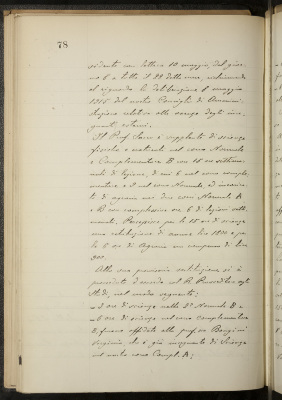 78
sidente con lettera 10 maggio, del gior-
no 6 a tutto il 22 dello
al riguardo la deliberazione 8 maggio
del nostro Consiglio di Ammini-
strazione relativa alle degli inse-
gnanti
Il Prof. è supplente di scienze
fisiche e naturali nel corso Normale
e Complementare B con 15 ore settima-
nali di lezione, di cui 6 nel corso comple-
mentare e 9 nel corso Normale, ed incarica-
to di agraria nei due corsi Normali A
e B con complessive ore 6 di lezioni setti-
manali. Percepisce per le 15 ore di scienze
una retribuzione di annue lire 1800 e per
le 6 ore di Agraria un compenso di lire
300.
Alla sua provvisoria sostituzione si è
provveduto d'accordo col R. Provveditore agli
Studi, nel modo seguente:
ore di scienze nelle Normale B e
ore di scienze nel corso complementare
B, furono affidate alla prof.ssa
Virginia, che è già insegnante di Scienze
nel nostro corso Compl. A;